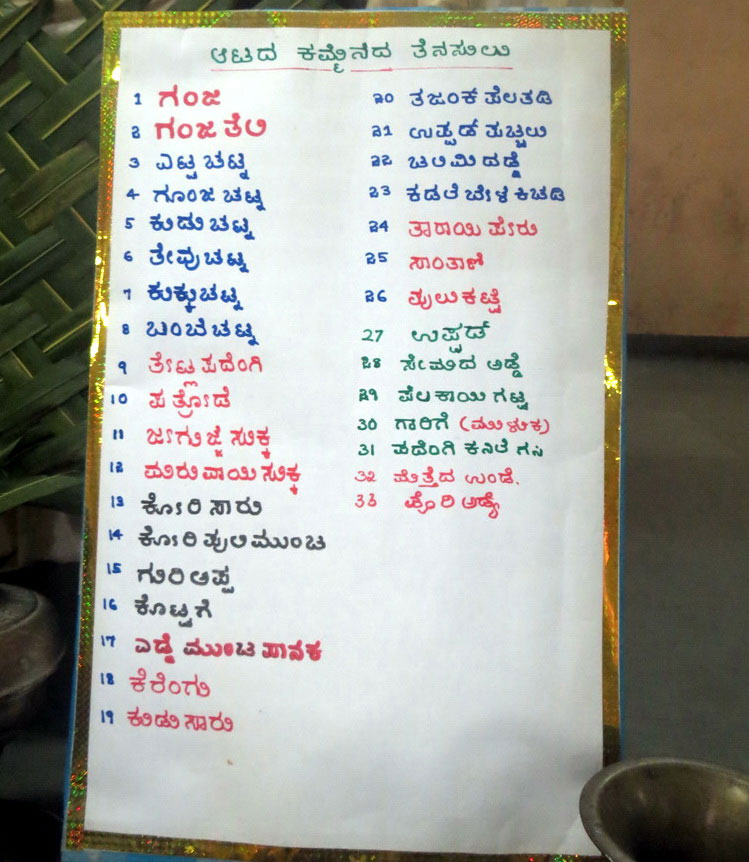 ಆಟದ ಕಮ್ಮೆನದ ತೆನಸುಲು
1 ಗಂಜಿ
2 ಗಂಜಿ ತೆಲಿ
3 ಎಟ್ಟಿ ಚಟ್ನಿ
4 ಗೂಂಜಿ ಚಟ್ನಿ
5 ಕುಡು ಚಟ್ನಿ
6 ತೇವು ಚಟ್ನಿ
7 ಕುಕ್ಕು ಚಟ್ನಿ
8 ಬಂಬೆ ಚಟ್ನಿ
9 ತೇಟ್ಲ ಪದೆಂಗಿ
10 ಪತ್ರೋಡೆ
11 ಜೀಗುಜ್ಜೆ ಸುಕ್ಕ
12 ಮರುವಾಯಿ ಸುಕ್ಕ
13 ಕೋರಿ ಸಾರು
14 ಕೋರಿ ಪುಲಿಮುಂಚಿ
15 ಗುರಿ ಅಪ್ಪ
16 ಕೊಟ್ಟಿಗೆ
17 ಎಡ್ಡೆ ಮುಂಚಿ ಪಾನಕ
18 ಕೆರೆಂಗು
19 ಕುಡು ಸಾರು
20 ತಜಂಕ ಪೆಲತಡಿ
21 ಉಪ್ಪಡ್ ಪಚ್ಚಿಲು
22 ಚಿಲಿಮಿ ದಡ್ಡೆ
23 ಕಡಲೆ ಬೇಳೆ ಕಿಚಡಿ
24 ತಾರಾಯಿ ಪೇರು
25 ಸಾಂತಾಣಿ
26 ಪುಲುಕಟ್ಟೆ
27 ಉಪ್ಪಡ್
28 ಸೇಮಿದ ಅಡ್ಡೆ
29 ಪೆಲಕಾಯಿ ಗಟ್ಟಿ
30 ಗಾರಿಗೆ (ಮುಳುಕ)
31 ಪದೆಂಗಿ ಕನಿಲೆ ಗಸಿ
32 ಮೆತ್ತೆದ ಉಂಡೆ.
33 ಪೊರಿ ಅಡ್ಯೆ